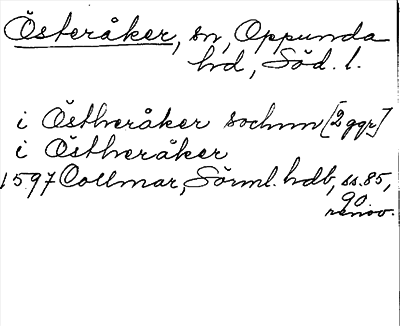 Österåker, sn, Oppunda
hd, Söd. l.
i Östheråker sochnn [2 ggr]
i Östheråker
1597 Collmar, Sörml. hdb, ss. 85,
90.
renov.